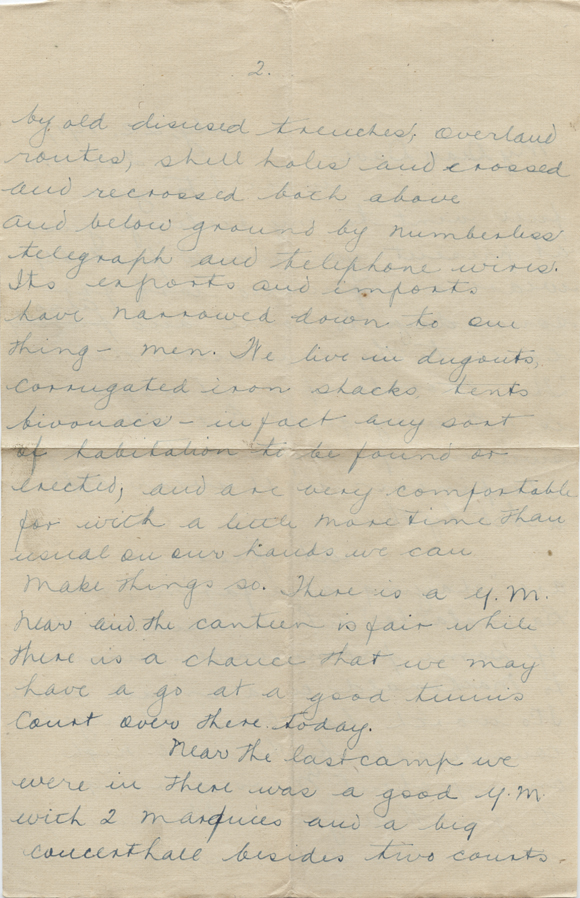 2.
by old disused trenches, overland
routes, shell holes and crossed
and recrossed both above
and below ground by numberless
telegraph and telephone wires.
Its exports and imports
have narrowed down to one
thing - men. We live in dugouts,
corrugated iron shacks, tents
bivouacs - in fact any sort
of habitation to be found or
erected, and are very comfortable
for with a little more time than
usual on our hands we can
make things so. There is a Y.M.
near and the canteen is fair while
there is a chance that we may
have a go at a good tennis
court over there today.
Near the last camp we
were in there was a good Y.M.
with 2 marquees and a big
concert hall besides two courts.